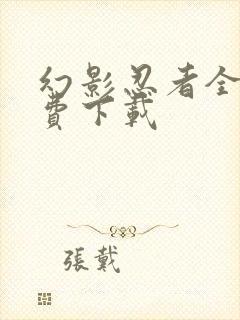 幻影忍者全
費下載
張戴